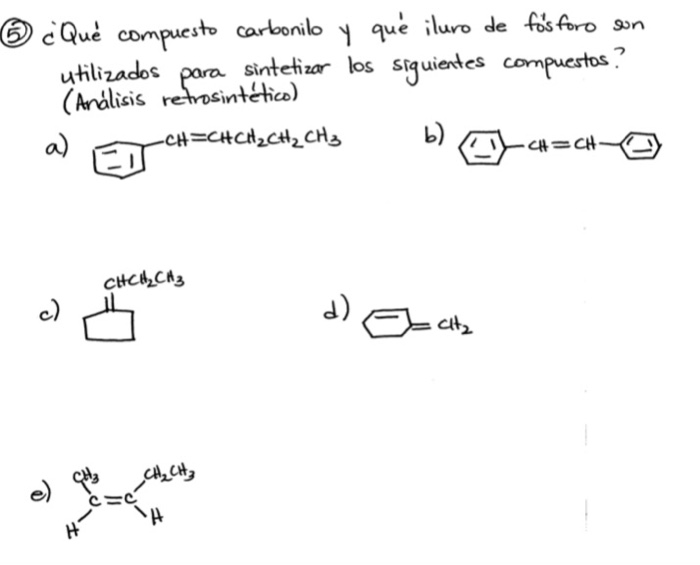 ⑤ ¿Qué compuesto carbonilo y qué iluro de fósforo son
utilizados para sintetizar los siguientes compuestos?
(Análisis retrosintético)
a) -CH=CHCH₂CH₂CH₃
b) -CH=CH-
c) CHCH₂CH₃
d) =CH₂
e) CH₃ CH₂CH₃
C=C
H H